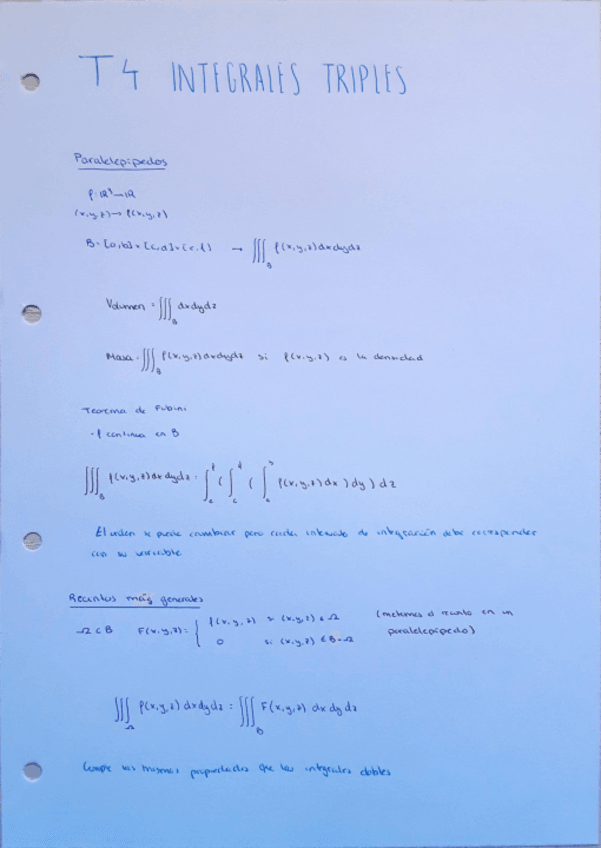 T4 INTEGRALES TRIPLES
Paralelepípedos
f: ℝ³ → ℝ
(x,y,z) → f(x,y,z)
B = [a,b] × [c,d] × [e,f] → ∭_B f(x,y,z) dx dy dz
Volumen = ∭_B dx dy dz
Masa = ∭_B f(x,y,z) dx dy dz si f(x,y,z) es la densidad
Teorema de Fubini
- f continua en B
∭_B f(x,y,z) dx dy dz = ∫_e^f ( ∫_c^d ( ∫_a^b f(x,y,z) dx ) dy ) dz
El orden se puede cambiar pero cada intervalo de integración debe corresponder
con su variable
Recintos más generales
Ω ⊂ B F(x,y,z) = { f(x,y,z) si (x,y,z) ∈ Ω (metemos el recinto en un
0 si (x,y,z) ∈ B-Ω paralelepípedo)
∭_Ω f(x,y,z) dx dy dz = ∭_B F(x,y,z) dx dy dz
Cumple las mismas propiedades que las integrales dobles